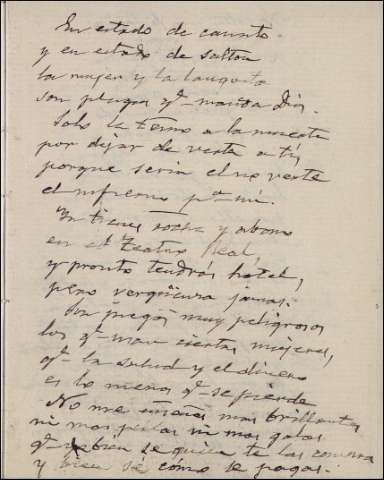 En estado de canuto
y en estado de saltón
la mujer y la langosta
son plagas qe manda Dios.
Solo le temo a la muerte
por dejar de verte a tí,
porque sería el no verte
el infierno pa mí.
Tu tienes coche y abono
en el teatro Real,
y pronto tendrás hotel,
pero vergüenza jamás.
Son juegos muy peligrosos
los qe usan ciertas mujeres,
qe la salud y el dinero
es lo menos qe se pierde
No me enseñes mas brillantes
ni mas perlas ni mas galas
qe yo bien se quien te las compra
y bien sé cómo se pagan.